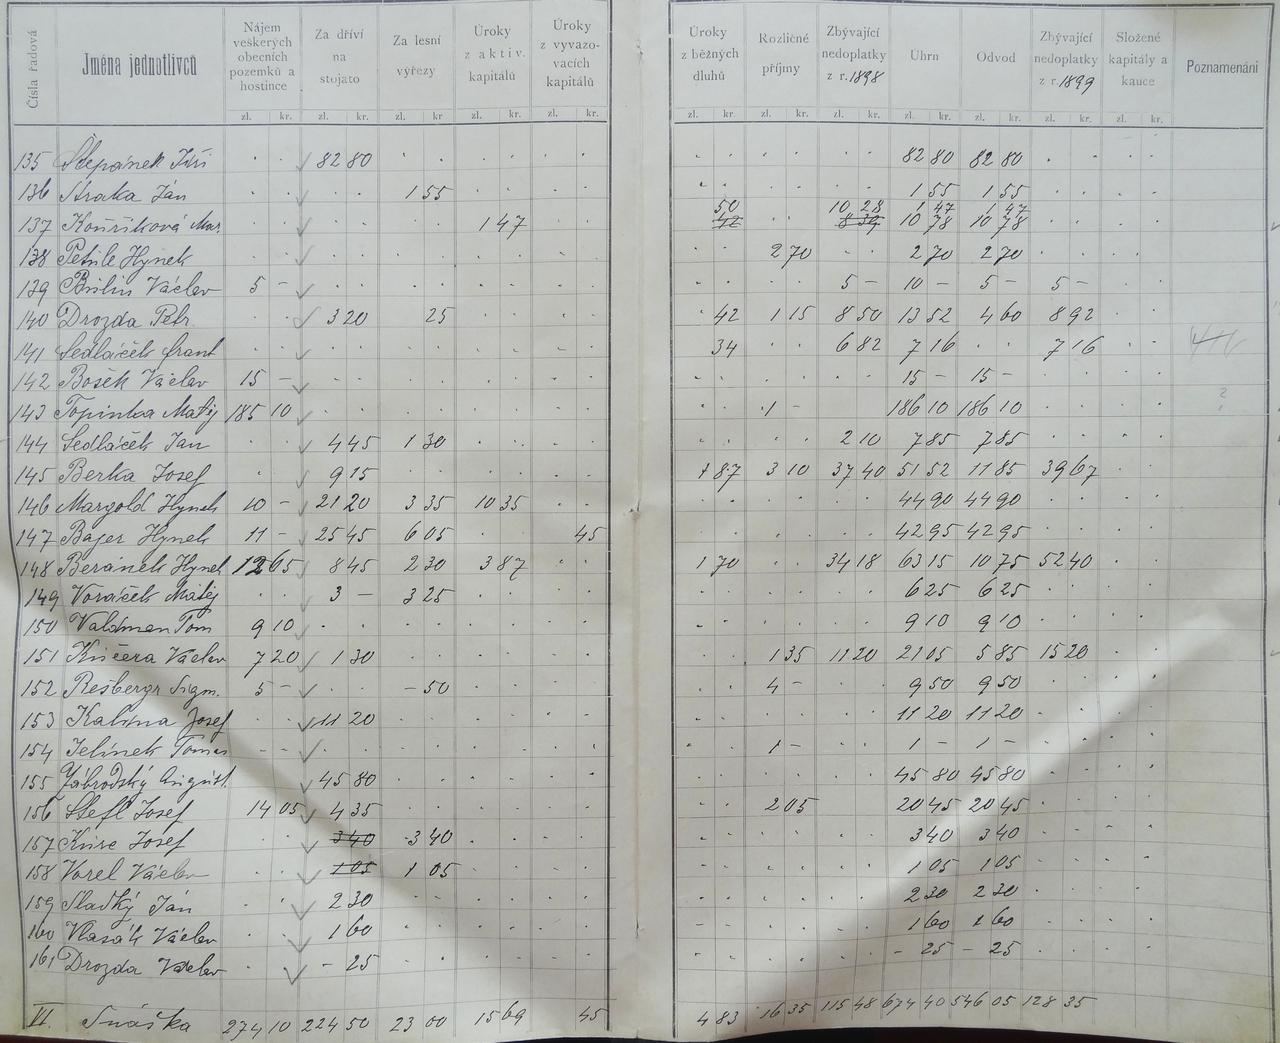 Čísla řadová Jména jednotlivců Nájem veškerých obecních pozemků a hostince Za dříví na stojato Za lesní výřezy Úroky z aktiv. kapitálů Úroky z vyvazovacích kapitálů Úroky z běžných dluhů Rozličné příjmy Zbývající nedoplatky z r. 1898 Úhrn Odvod Zbývající nedoplatky z r. 1899 Složené kapitály a kauce Poznamenání
zl. kr. zl. kr. zl. kr. zl. kr. zl. kr. zl. kr. zl. kr. zl. kr. zl. kr. zl. kr. zl. kr. zl. kr.
135 Štěpánek Jiří 82 80 82 80 82 80
136 Straka Ján 1 55 1 55 1 55
50 10 28 1 47 1 47
137 Kouříková Mar. 1 47 42 8 39 10 78 10 78
138 Hynek 2 70 2 70 2 70
139 Václav 5 - 5 - 10 - 5 - 5 -
140 Drozda Petr. 3 20 25 42 1 15 8 50 13 52 4 60 8 92
141 Sedláček Frant 34 6 82 7 16 7 16
142 Bosěk Václav 15 - 15 - 15 -
143 Topinka Matěj 185 10 1 - 186 10 186 10
144 Sedláček Ján 4 45 1 30 2 10 7 85 7 85
145 Berka Josef 9 15 1 87 3 10 37 40 51 52 11 85 39 67
146 Margold Hynek 10 - 21 20 3 35 10 35 44 90 44 90
147 Bajer Hynek 11 - 25 45 6 05 45 42 95 42 95
148 Beránek Hynek 12 65 8 45 2 30 3 87 1 70 34 18 63 15 10 75 52 40
149 Voráček Matěj 3 - 3 25 6 25 6 25
150 Valdman Tom 9 10 9 10 9 10
151 Kučera Václav 7 20 1 30 1 35 11 20 21 05 5 85 15 20
152 Resbergr Sigm. 5 - - 50 4 - 9 50 9 50
153 Kalina Josef 11 20 11 20 11 20
154 Jelínek Tomas 1 - 1 - 1 -
155 Zábrodský August. 45 80 45 80 45 80
156 Štefl Josef 14 05 4 35 2 05 20 45 20 45
157 Josef 3 40 3 40 3 40 3 40
158 Vorel Václav 1 05 1 05 1 05 1 05
159 Sladký Ján 2 30 2 30 2 30
160 Vlasák Václav 1 60 1 60 1 60
161 Drozda Václav - 25 - 25 - 25
VI. Snáška 274 10 224 50 23 00 15 69 45 4 83 16 35 115 48 674 40 546 05 128 35